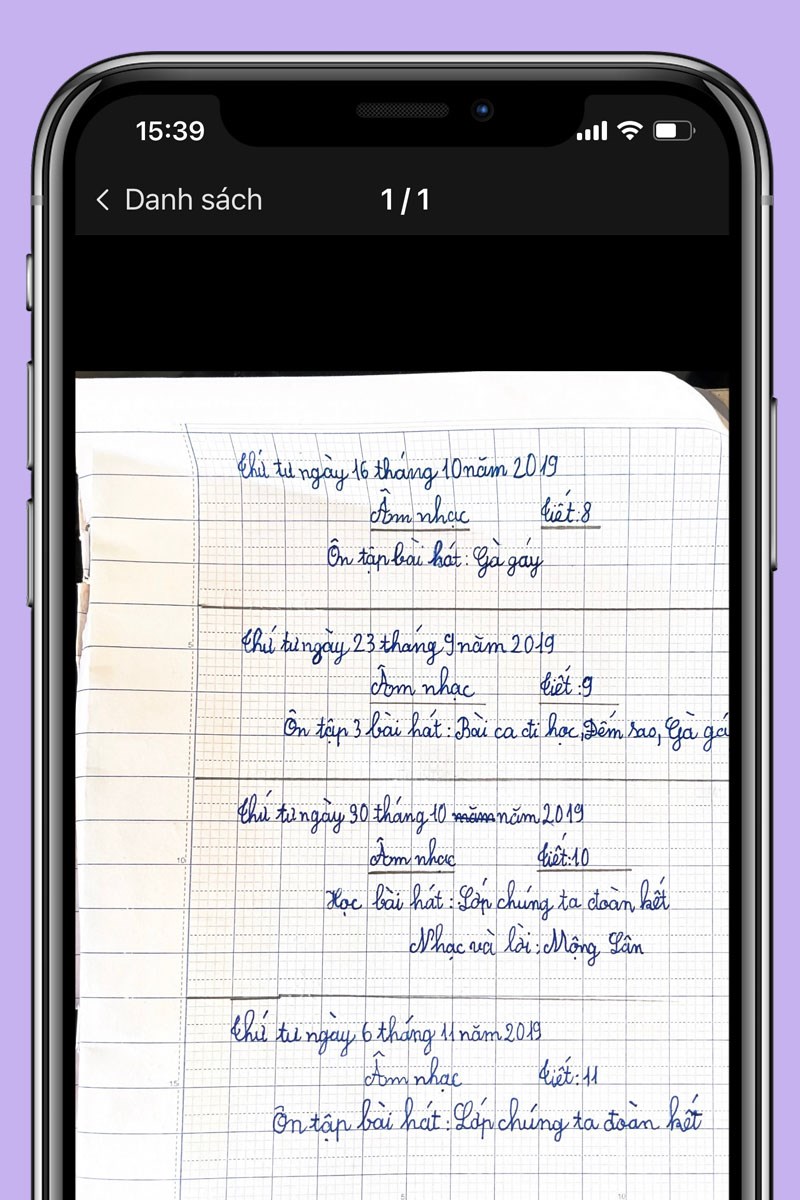 15:39
Danh sách
1/1
Thứ tư ngày 16 tháng 10 năm 2019
Âm nhạc Tiết:8
Ôn tập bài hát: Gà gáy
5
Thứ tư ngày 23 tháng 9 năm 2019
Âm nhạc Tiết:9
Ôn tập 3 bài hát: Bài ca đi học, Đếm sao, Gà gá
Thứ tư ngày 30 tháng 10 năm năm 2019
10
Âm nhạc Tiết:10
Học bài hát: Lớp chúng ta đoàn kết
Nhạc và lời: Mộng Lân
Thứ tư ngày 6 tháng 11 năm 2019
15
Âm nhạc Tiết:11
Ôn tập bài hát: Lớp chúng ta đoàn kết
5 10